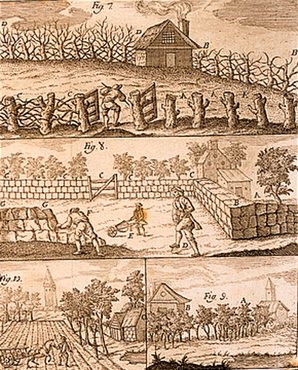 Fig. 7.
D
D
B
B
C
A
Fig. 8.
C
C
C
A
G
G
B
D
Fig. 10.
Fig. 9.
B
A